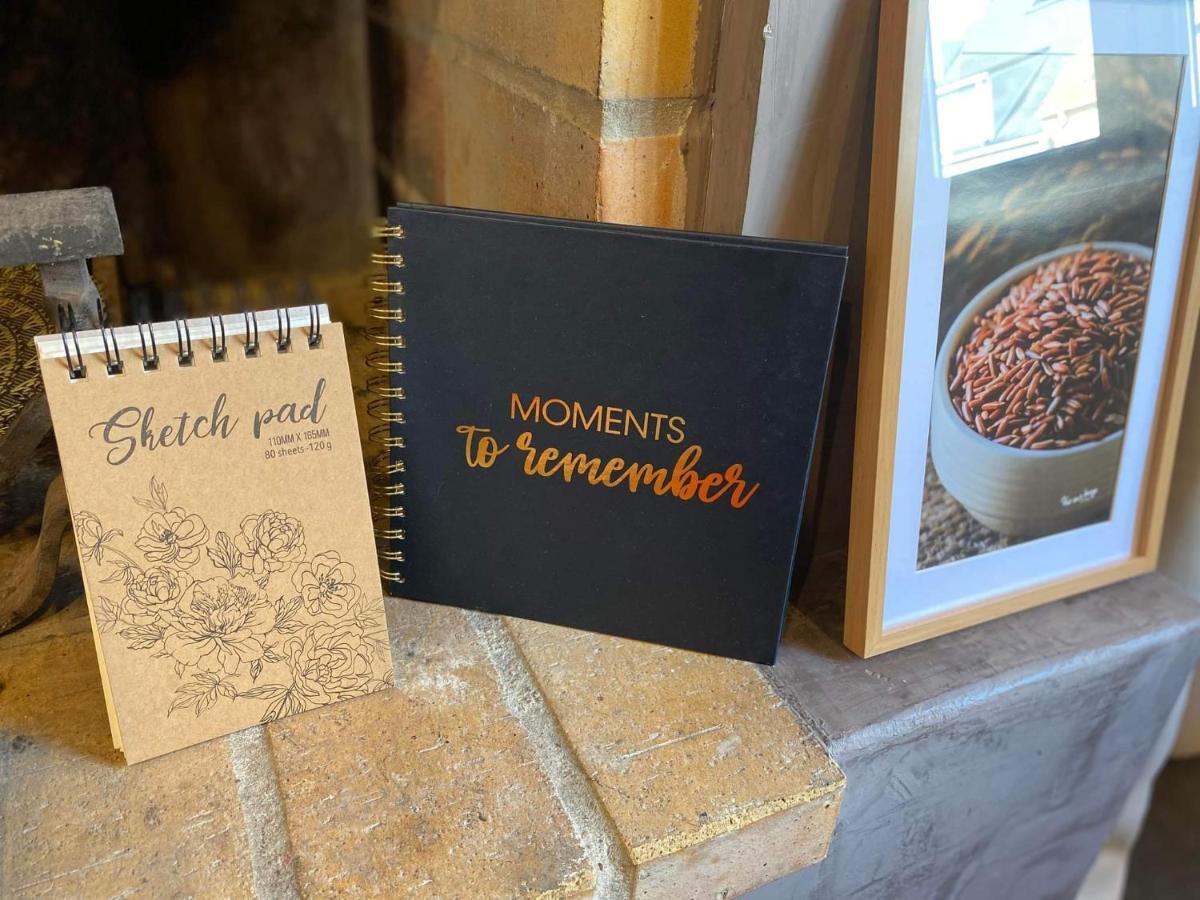 Sketch pad
110MM X 165MM
80 sheets -120 g
MOMENTS
to remember